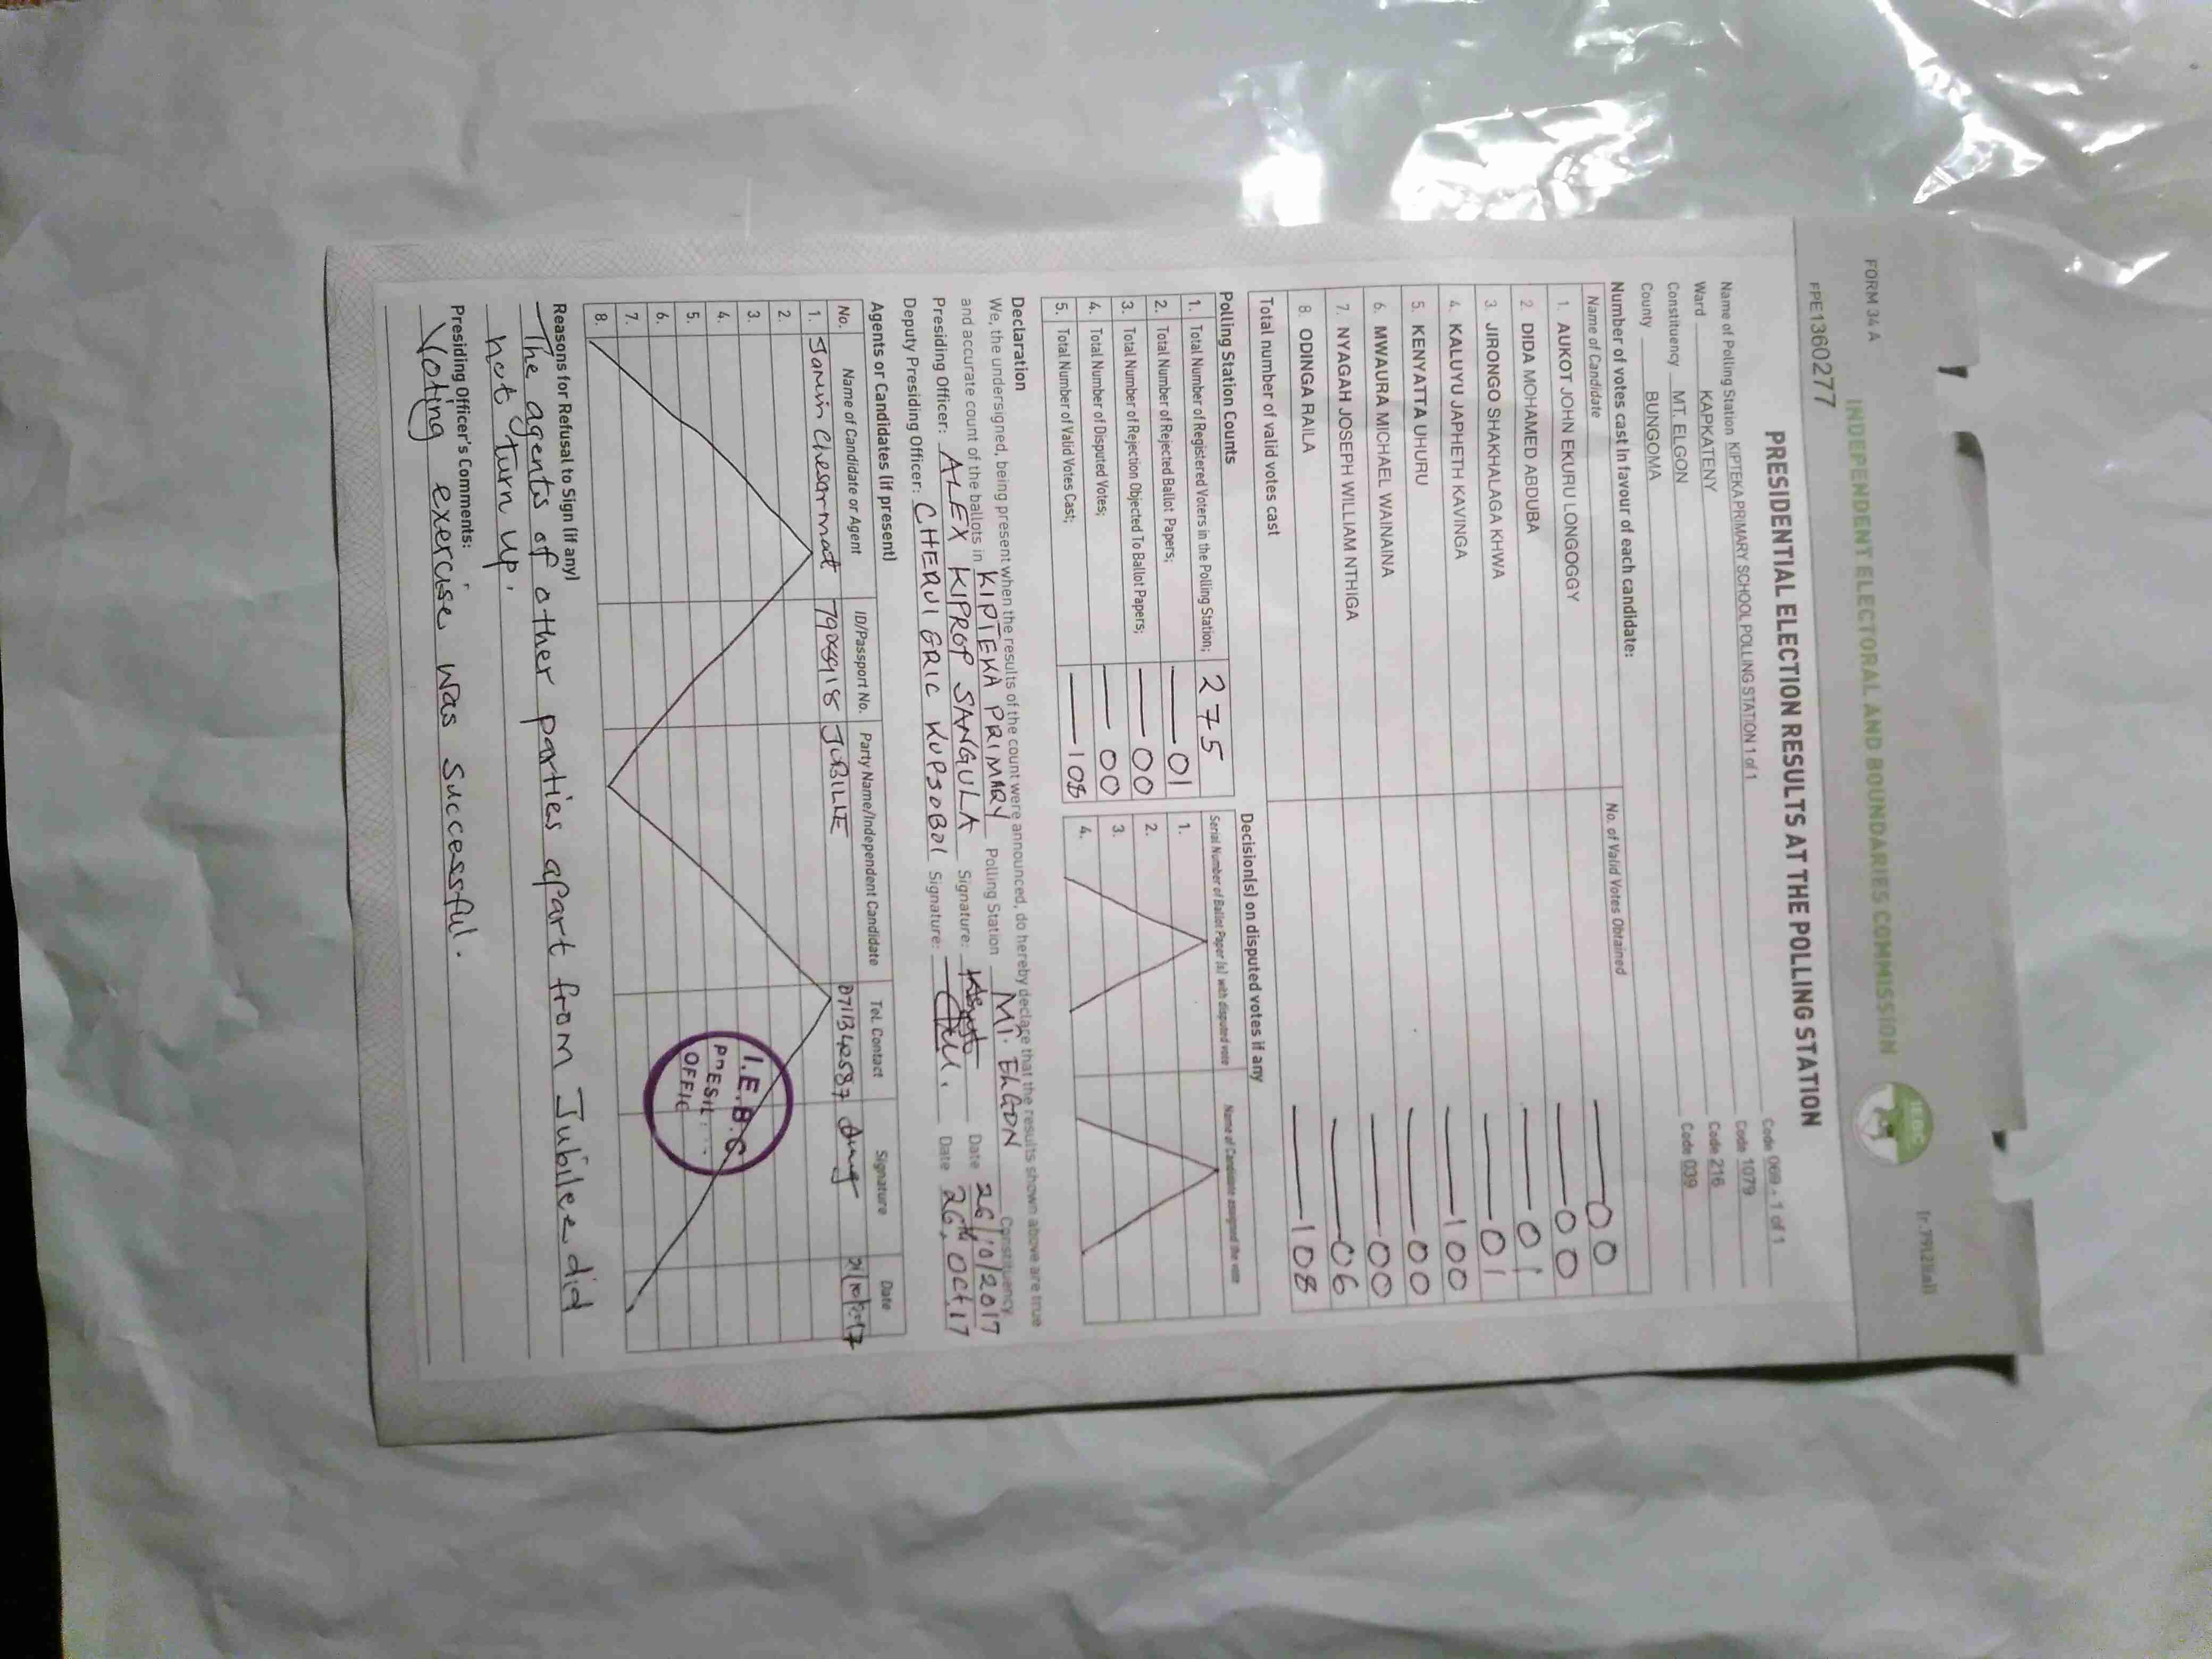 FORM 34 A
INDEPENDENT ELECTORAL AND BOUNDARIES COMMISSION
IEBC
FPE1360277
PRESIDENTIAL ELECTION RESULTS AT THE POLLING STATION
Name of Polling Station KIPTEKA PRIMARY SCHOOL POLLING STATION 1 of 1 Code 069 - 1 of 1
Ward KAPKATENY Code 1079
Constituency MT. ELGON Code 216
County BUNGOMA Code 039
Number of votes cast in favour of each candidate:
Name of Candidate No. of Valid Votes Obtained
1. AUKOT JOHN EKURU LONGOGGY 00
2. DIDA MOHAMED ABDUBA 00
3. JIRONGO SHAKHALAGA KHWA 01
4. KALUYU JAPHETH KAVINGA 01
5. KENYATTA UHURU 100
6. MWAURA MICHAEL WAINAINA 00
7. NYAGAH JOSEPH WILLIAM NTHIGA 00
8. ODINGA RAILA 06
Total number of valid votes cast 108
Polling Station Counts
1. Total Number of Registered Voters in the Polling Station; 275
2. Total Number of Rejected Ballot Papers; 01
3. Total Number of Rejection Objected To Ballot Papers; 00
4. Total Number of Disputed Votes; 00
5. Total Number of Valid Votes Cast; 108
Decision(s) on disputed votes if any
Serial Number of Ballot Paper (s) with disputed vote Name of Candidate assigned the vote
1.
2.
3.
4.
Declaration
We, the undersigned, being present when the results of the count were announced, do hereby declare that the results shown above are true
and accurate count of the ballots in KIPTEKA PRIMARY Polling Station MT. ELGON Constituency
Presiding Officer: ALEX KIPROP SANGULA Signature: Date 26/10/2017
Deputy Presiding Officer: CHERUI ERIC KUPSOBOI Signature: Date 26th, Oct, 17
Agents or Candidates (if present)
No. Name of Candidate or Agent ID/Passport No. Party Name/Independent Candidate Tel. Contact Signature Date
1. Chesarmat JUBILEE
2.
3.
4.
5.
6.
7.
8.
I.E.B.C
Reasons for Refusal to Sign (if any)
The agents of other parties apart from Jubilee did
not turn up.
Presiding Officer's Comments:
Voting exercise was successful.